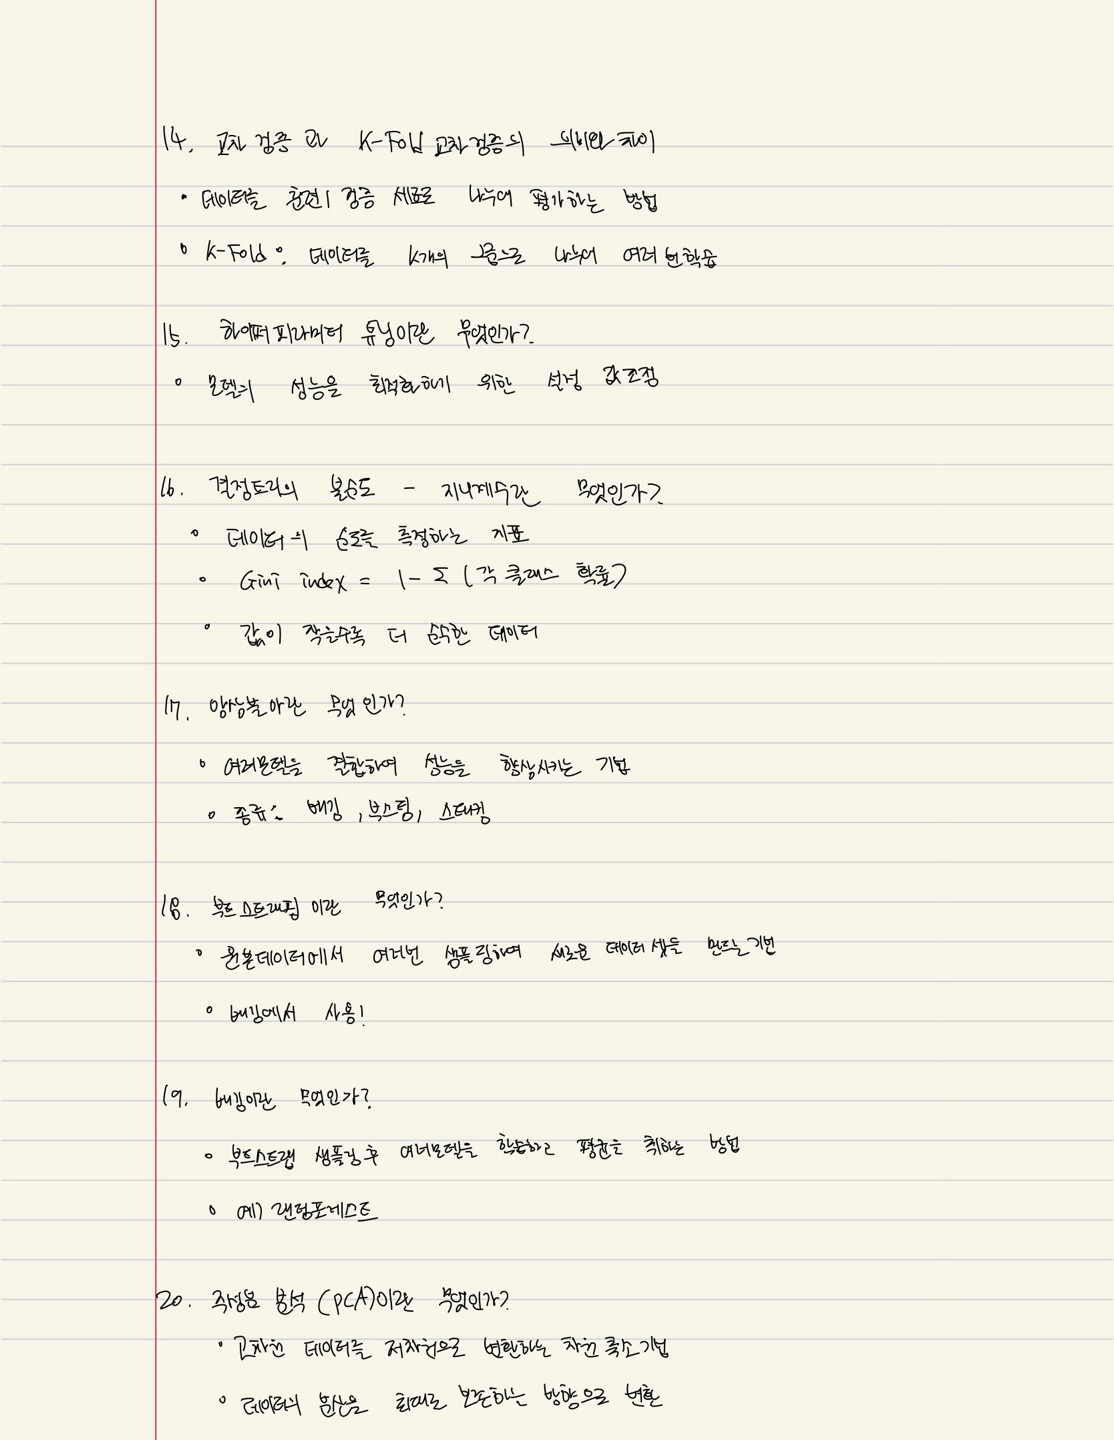 14. 교차 검증 과 K-Fold 교차 검증의 의미와 차이
• 데이터를 훈련/검증 세트로 나누어 평가하는 방법
• K-Fold : 데이터를 K개의 그룹으로 나누어 여러 번 학습
15. 하이퍼 파라미터 튜닝이란 무엇인가?
• 모델의 성능을 최적화하기 위한 설정 값 조정
16. 결정트리의 불순도 - 지니계수란 무엇인가?
• 데이터의 순도를 측정하는 지표
• Gini index = 1-Σ(각 클래스 확률)
• 값이 작을수록 더 순수한 데이터
17. 앙상블이란 무엇인가?
• 여러모델을 결합하여 성능을 향상시키는 기법
• 종류: 배깅, 부스팅, 스태킹
18. 부트스트래핑 이란 무엇인가?
• 원본데이터에서 여러번 샘플링하여 새로운 데이터 셋을 만드는 기법
• 배깅에서 사용!
19. 배깅이란 무엇인가?
• 부트스트랩 샘플링 후 여러모델을 학습하고 평균을 취하는 방법
• 예) 랜덤포레스트
20. 주성분 분석 (PCA)이란 무엇인가?
• 고차원 데이터를 저차원으로 변환하는 차원 축소기법
• 데이터의 분산을 최대로 보존하는 방향으로 변환